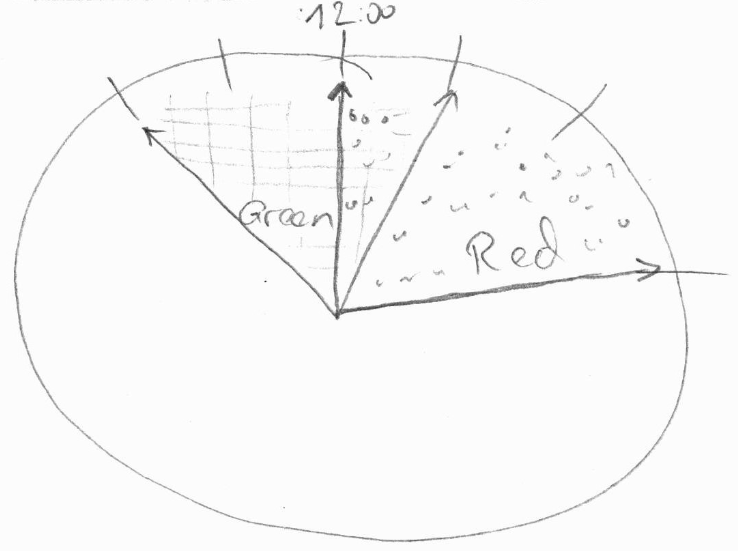 :12:00
Green
Red